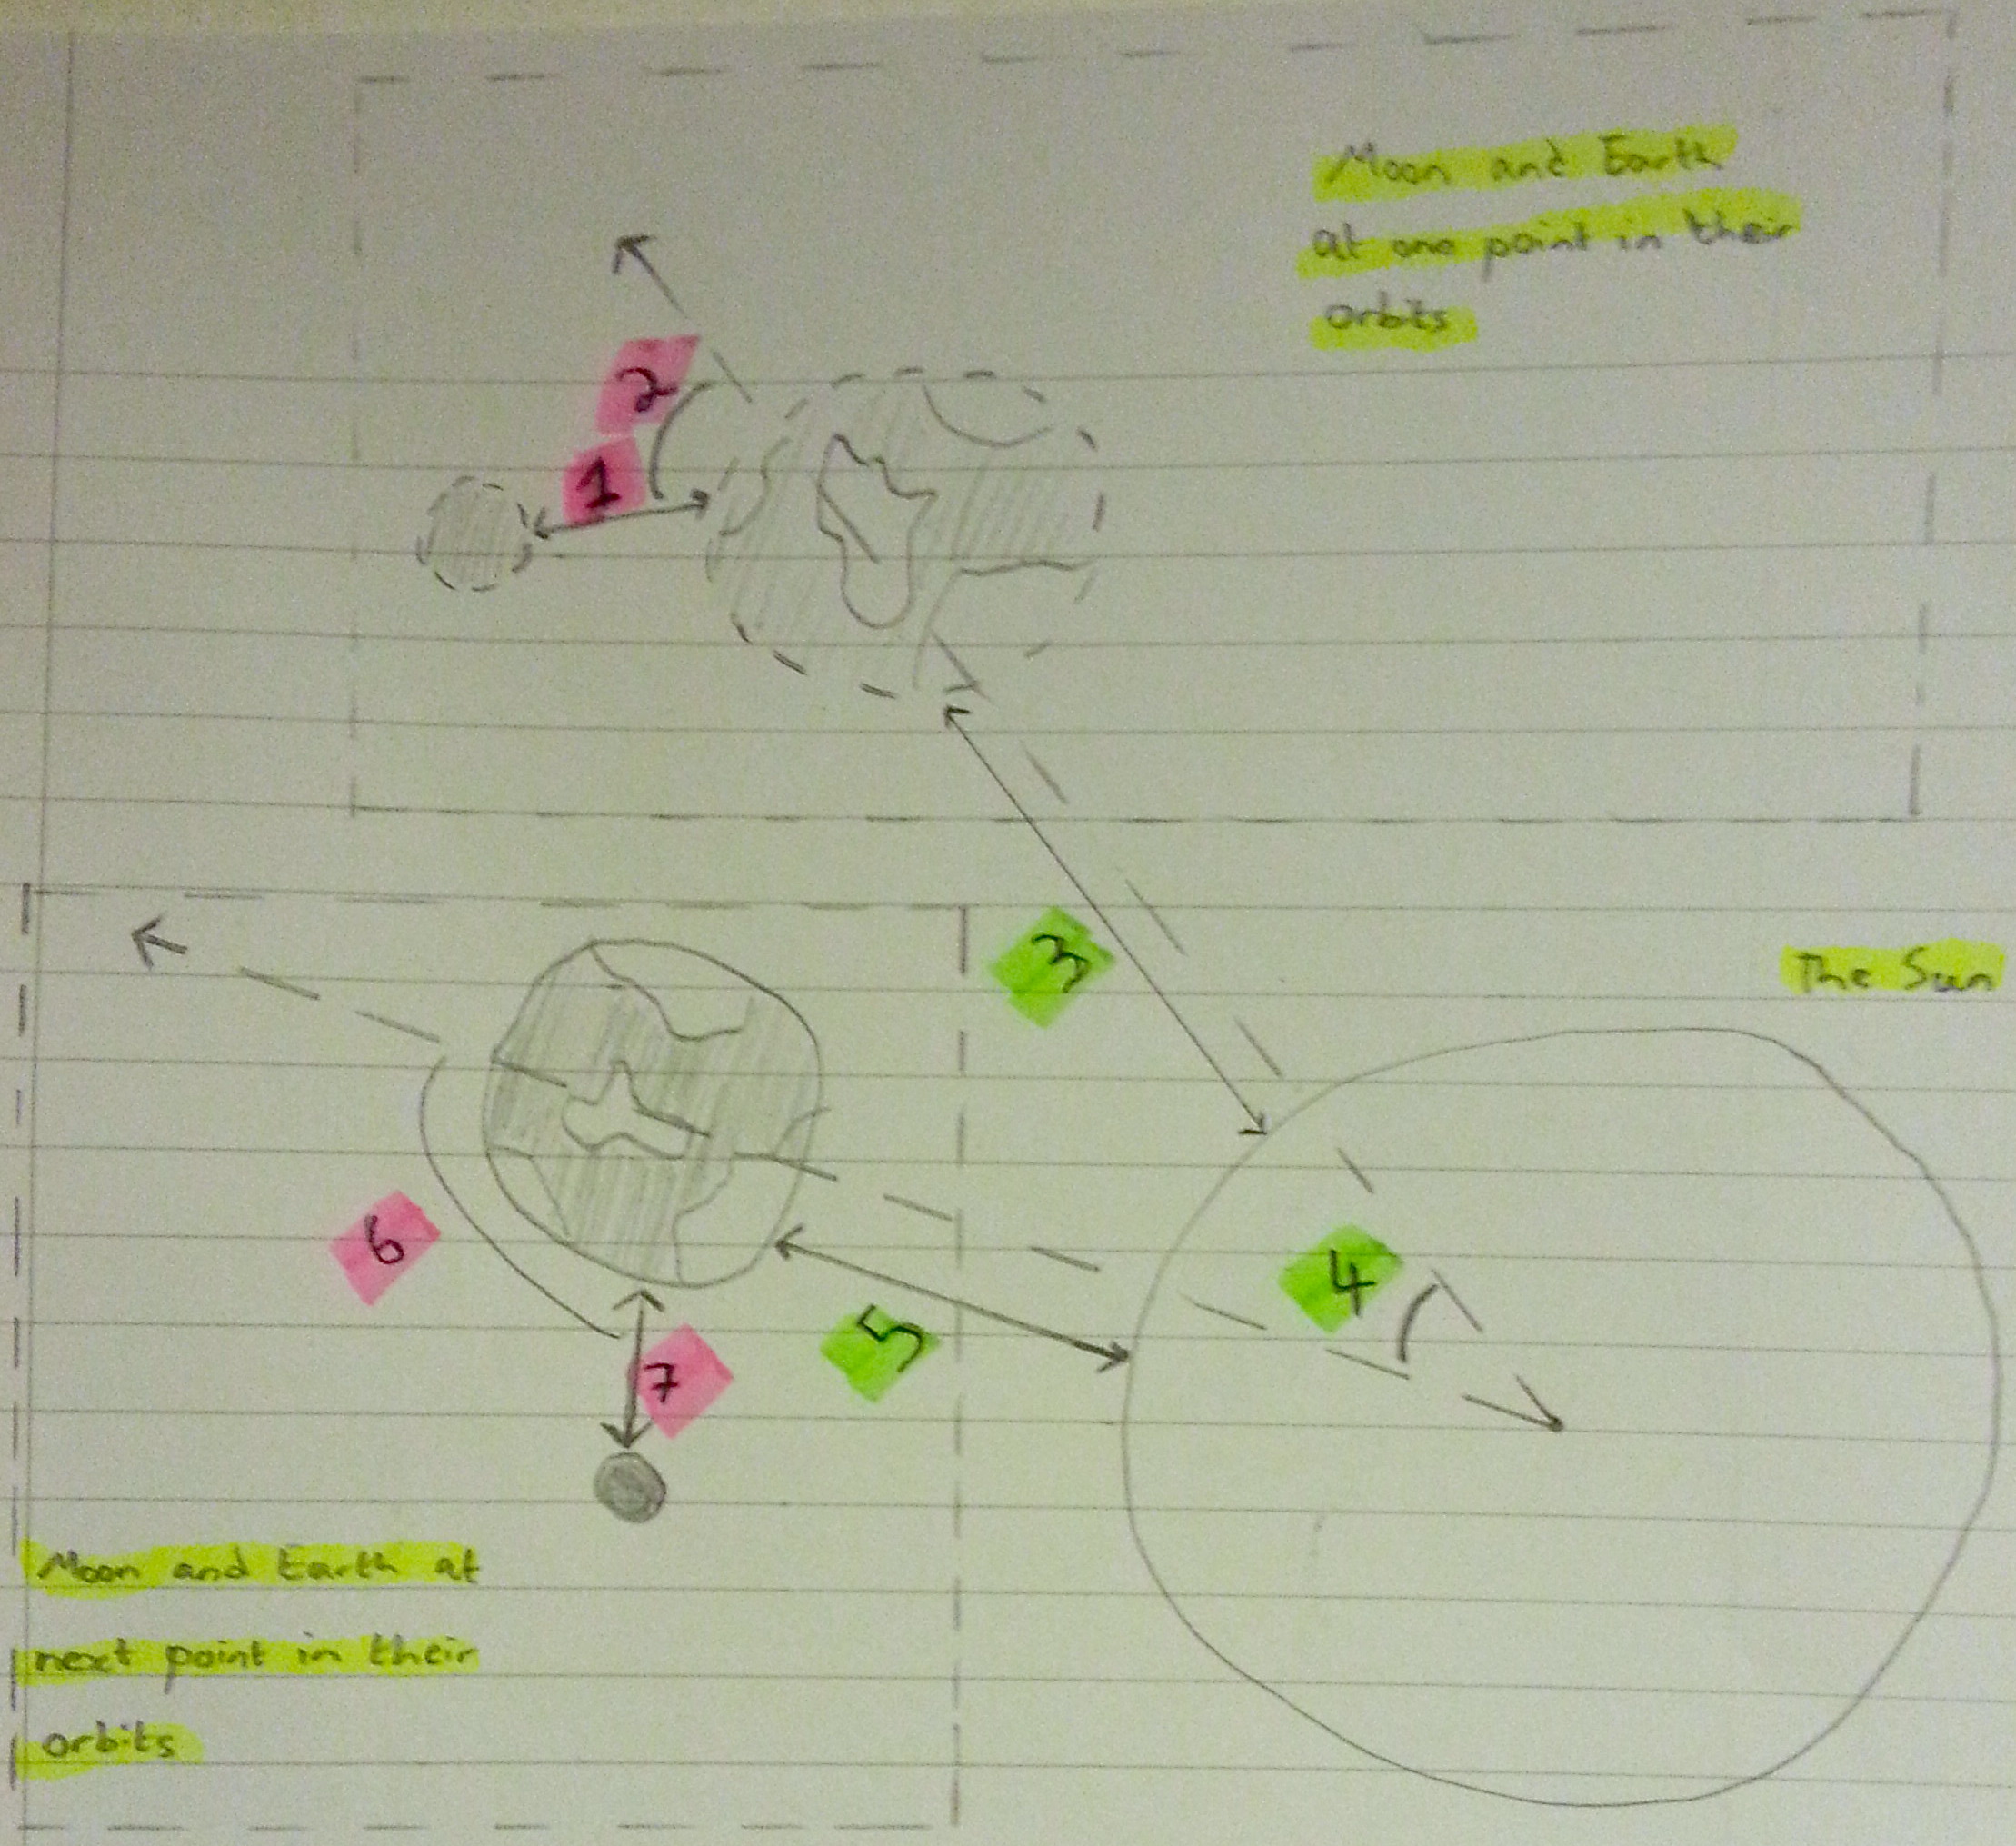 Moon and Earth
at one point in their
orbits
2
1
3
The Sun
6
4
5
7
Moon and Earth at
next point in their
orbits